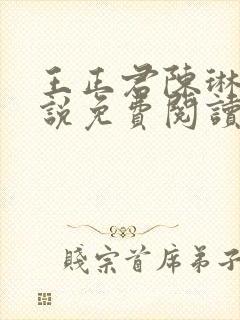 王正君陳琳
說免費閱讀
賤宗首席弟子